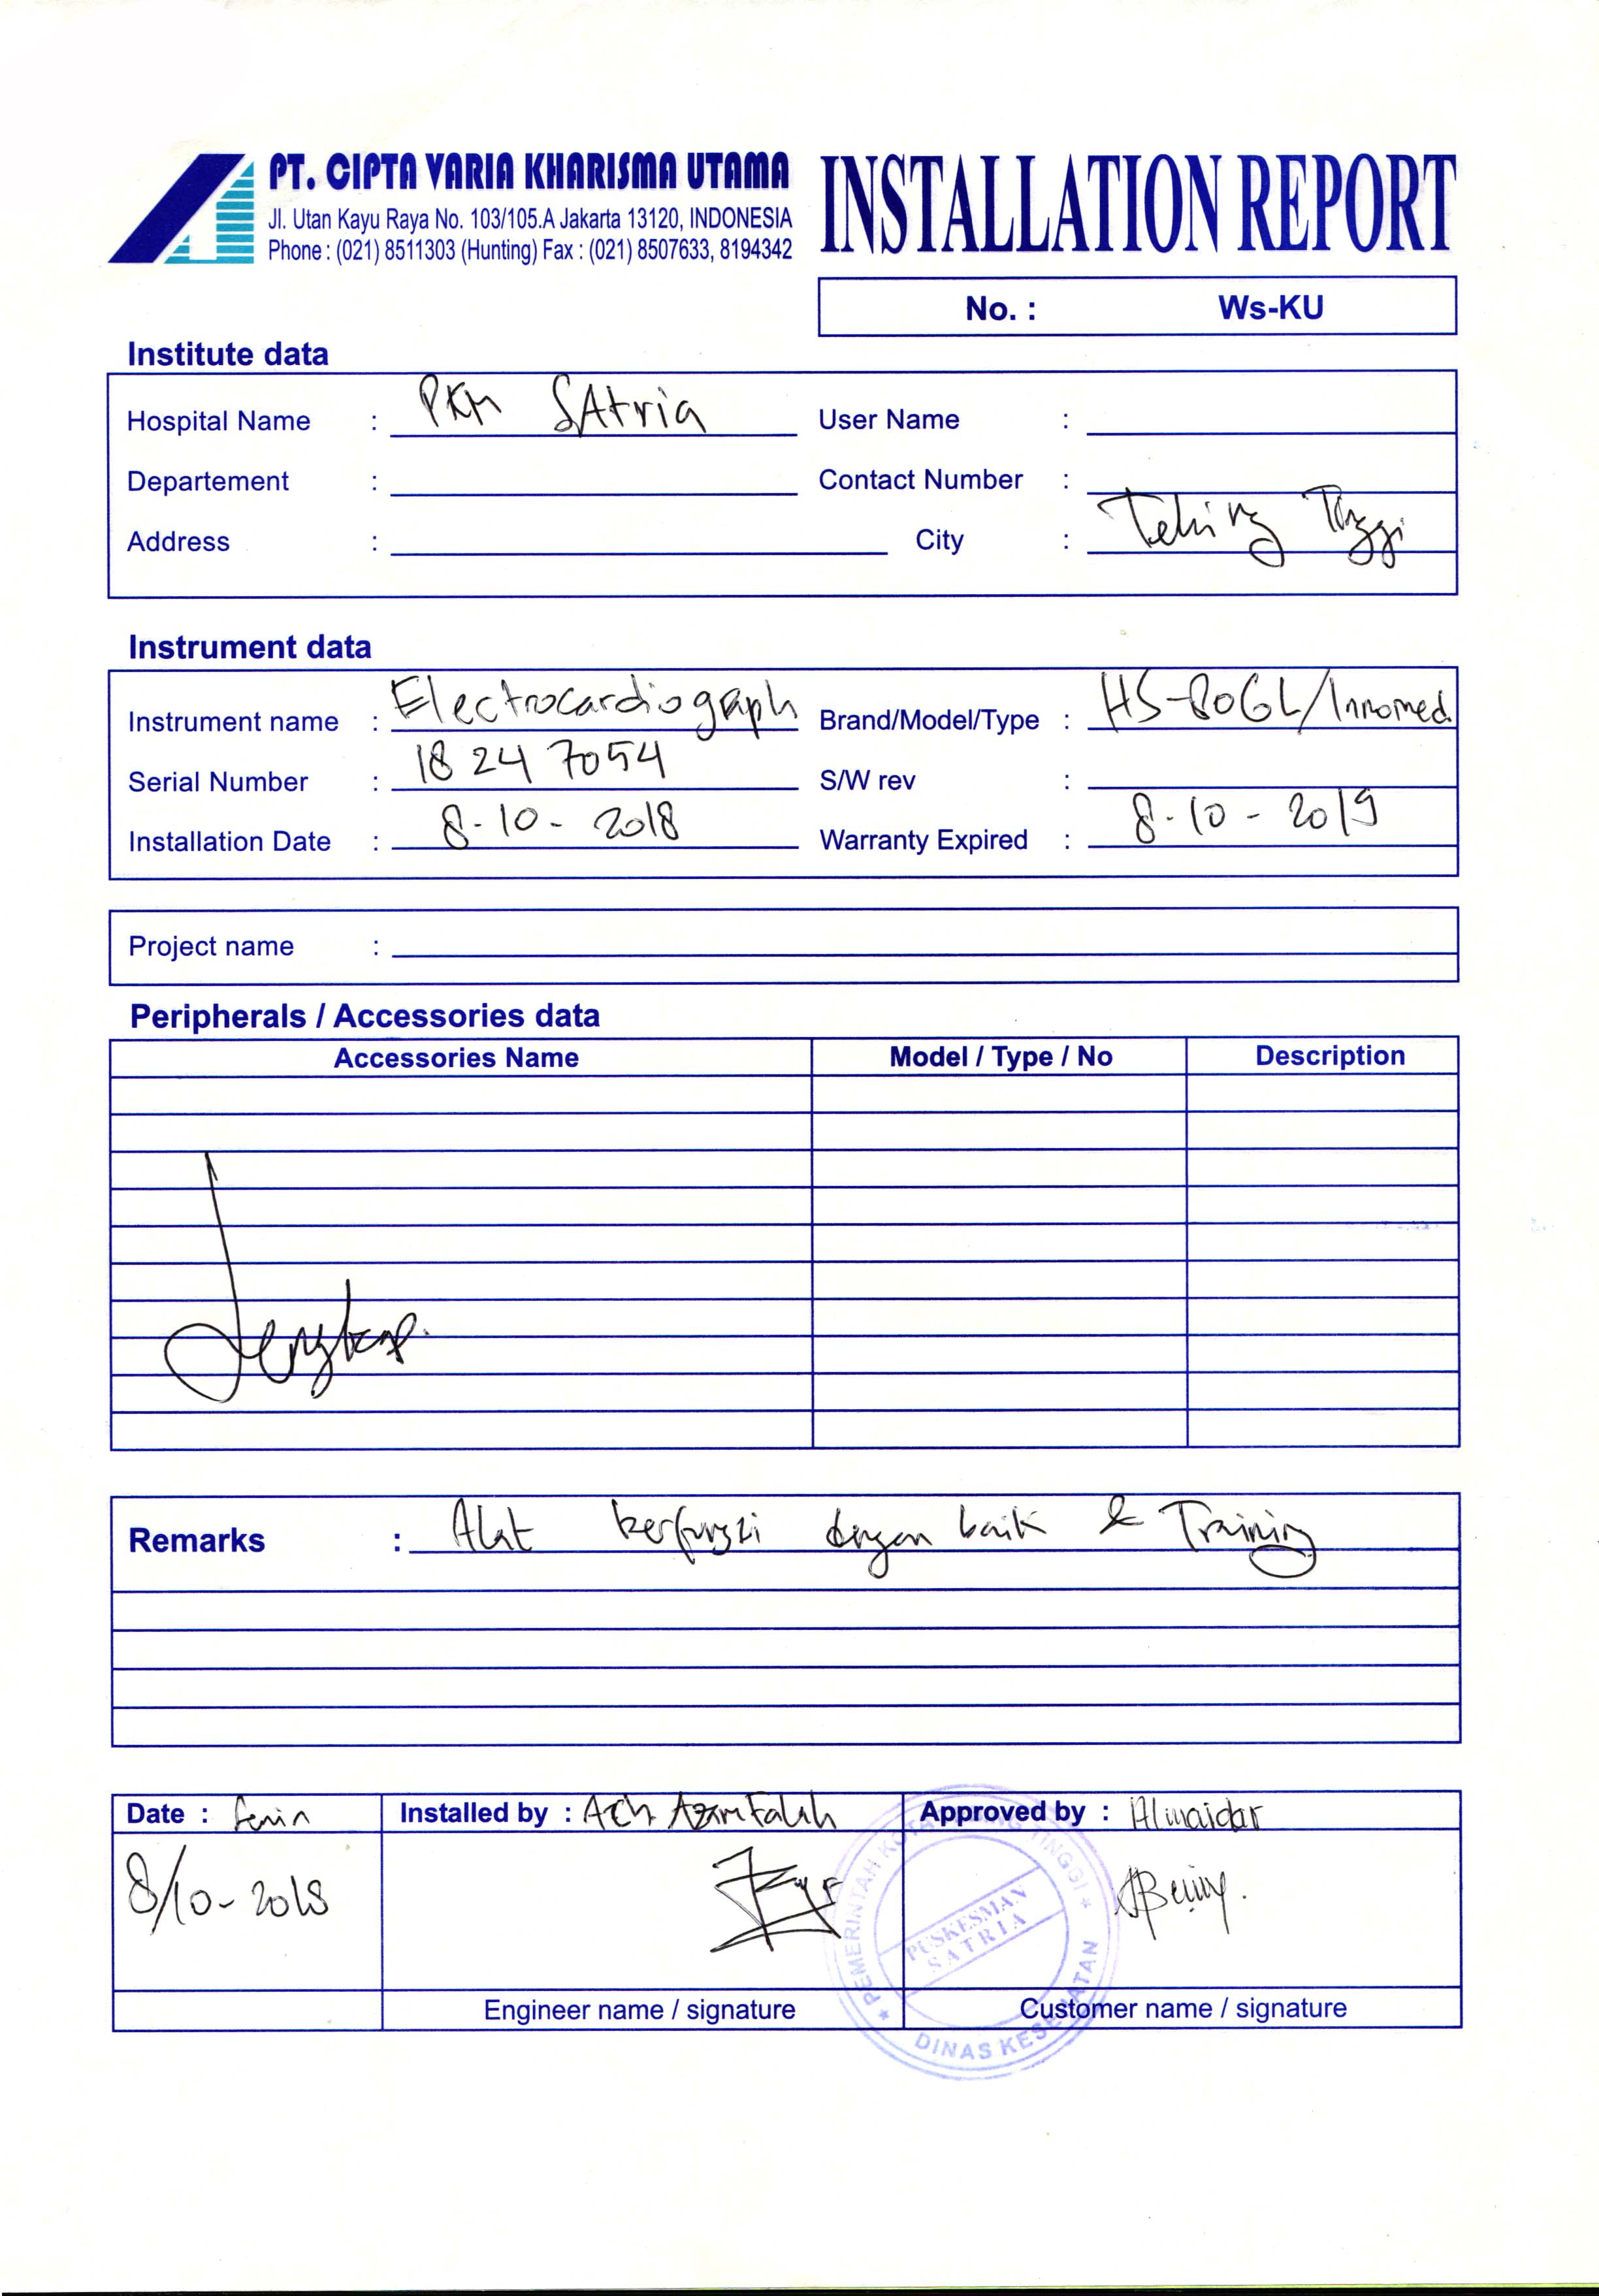 PT. CIPTA VARIA KHARISMA UTAMA
Jl. Utan Kayu Raya No. 103/105.A Jakarta 13120, INDONESIA
Phone : (021) 8511303 (Hunting) Fax : (021) 8507633, 8194342
INSTALLATION REPORT
No. : Ws-KU
Institute data
Hospital Name : PKM SAtria User Name :
Departement : Contact Number :
Address : City : Tebing Tinggi
Instrument data
Instrument name : Electrocardiograph Brand/Model/Type : HS-80GL/Innomed
Serial Number : 18 24 7054 S/W rev :
Installation Date : 8-10-2018 Warranty Expired : 8-10-2019
Project name :
Peripherals / Accessories data
Accessories Name Model / Type / No Description
Lengkap.
Remarks : Alat berfungsi dengan baik & Training
Date : Senin Installed by : Ach Azam Falah Approved by : Almaidar
8/10-2018
PEMERINTAH KOTA TEBING TINGGI
PUSKESMAN
SATRIA
DINAS KESEHATAN
Engineer name / signature Customer name / signature